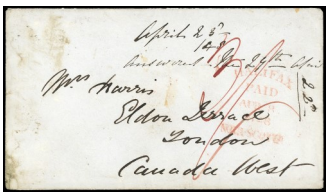 April 23rd
1148
answered 29th April
HALIFAX
PAID
Mrs Harris
Eldon Terrace
London
Canada West